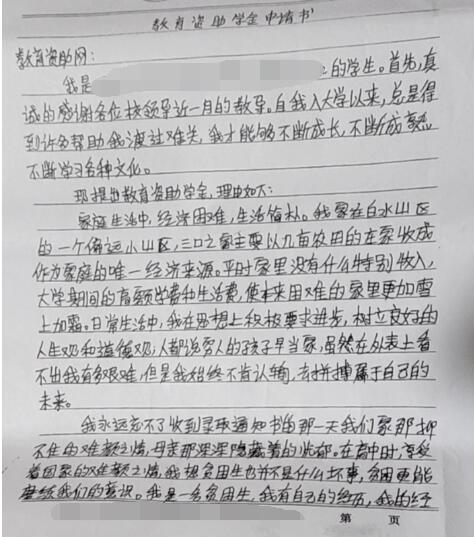 教育资助学金申请书
教育资助网：
我是
的学生。首先，真
诚的感谢各位校领导近一月的教导。自我入大学以来，总是得
到许多帮助我渡过难关，我才能够不断成长，不断成熟
不断学习各种文化。
现提出教育资助学金，理由如下：
家庭生活中，经济困难，生活简朴。我家在白水山区
的一个偏远小山区，三口之家主要以几亩农田的庄家收成
作为家庭的唯一经济来源。平时家里没有什么特别收入，
大学期间的高额学费和生活费，使本来困难的家里更加雪
上加霜。日常生活中，我在思想上积极要求进步，树立良好的
人生观和道德观，人都说穷人的孩子早当家，虽然在外表上看
不出我有多艰难，但是我始终不肯认输，去拼搏属于自己的
未来。
我永远忘不了收到录取通知书的那一天我们家那抑
不住的难郁之情，母亲那深深隐藏着的忧郁。在高中时，享受
着国家的难郁之情，我想贫困生也并不是什么坏事，贫困更能
我们的意识。我是一名贫困生，我有自己的经历，我的经
第 页